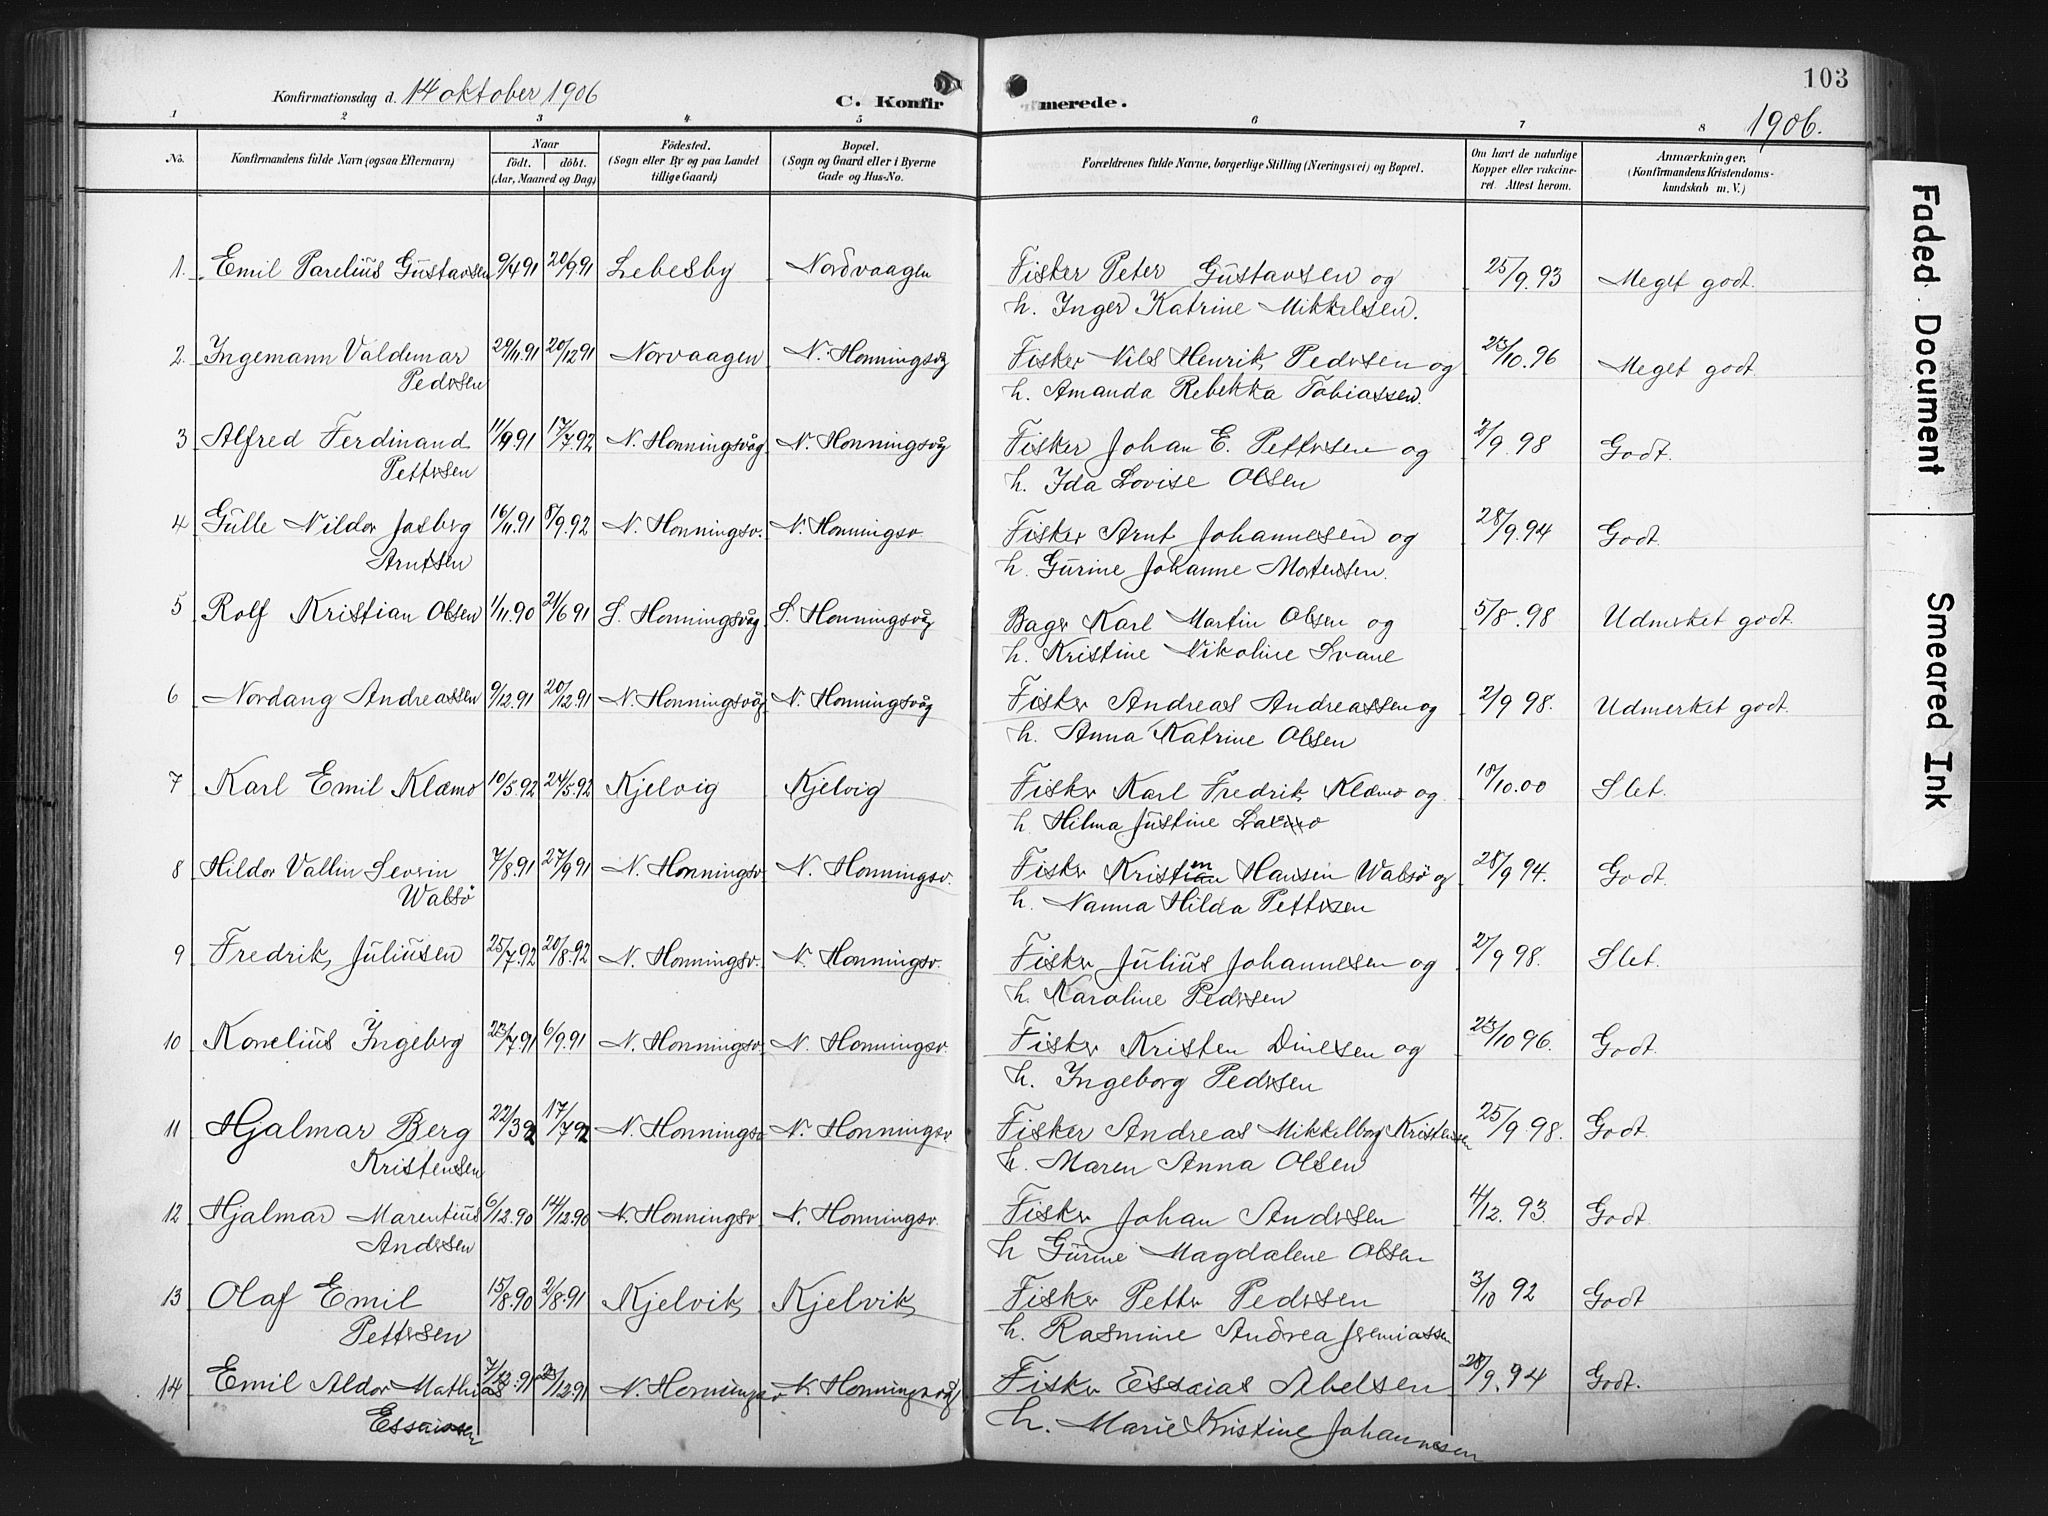 Konfirmationsdag d. 14 oktober 1906 C. Konfir merede. 103
1906.
1 2 3 4 5 6 7 8
No. Konfirmandens fulde Navn (ogsaa Efternavn) Naar født. døbt. (Aar, Maaned og Dag) Fødested. (Sogn eller By og paa Landet tillige Gaard) Bopæl. (Sogn og Gaard eller i Byerne Gade og Hus-No. Forældrenes fulde Navne, borgerlige Stilling (Næringsvei) og Bopæl. Om havt de naturlige Kopper eller vakcineret. Attest herom. Anmærkninger, (Konfirmandens Kristendomskundskab m. V.)
1. Emil Parelius Gustavsen 9/4 91 20/9 91 Lebesby Nordvaagen Fisker Peter Gustavsen og 25/9. 93 Meget godt.
h. Inger Katrine Mikkelsen.
2. Ingemann Valdemar 29/11.91 20/12 91 Norvaagen N. Honningsvg Fisker Nils Henrik Pedersen og 23/10. 96 Meget godt
Pedersen h. Amanda Rebekka Tobiassen.
3 Alfred Ferdinand 11/9.91 17/7.92 N. Honningsvåg N. Honningsvåg Fisker Johan E. Pettersen og 2/9. 98 Godt.
Pettersen h. Ida Lovise Olsen
4 Gulle Nildor Jasberg 16/11.91 8/9.92 N. Honningsv. N. Honningsv. Fisker Arnt Johannesen og 28/9.94 Godt.
Arntsen h. Gurine Johanne Mortensen.
5 Rolf Kristian Olsen 1/11.90 21/6 91 S. Honningsvåg S. Honningsvåg Bager Karl Martin Olsen og 5/8. 98 Udmerket godt.
h. Kristine Nikoline Svane
6 Nordang Andreassen 9/12.91 20/12.91 N. Honningsvåg N. Honningsvåg Fisker Andreas Andreassen og 2/9 98. Udmerket godt.
h. Anna Katrine Olsen
7 Karl Emil Klæmo 10/5.92 24/5.92 Kjelvig Kjelvig Fisker Karl Fredrik Klæmo og 18/10.00 Slet.
h. Hilma Justine
8 Hildor Vallin Severin 7/8.91 27/9 91 N. Honningsv. N. Honningsv. Fisker Kristen Hansen Walsø og 28/9 94. Godt.
Walsø h. Nanna Hilda Pettersen
9 Fredrik Juliusen 25/7.92 20/8.92 N. Honningsv. N. Honningsv. Fisker Julius Johannesen og 2/9 98. Slet.
h. Karoline Pedersen
10 Konelius Ingeberg 23/7.91 6/9.91 N. Honningsv. N. Honningsv. Fisker Kristen Dinesen og 23/10 96. Godt.
h. Ingeborg Pedersen
11 Hjalmar Berg 22/3 92 17/7 92 N. Honningsv N. Honningsv Fisker Andreas Mikkelborg Kristensen 25/9. 98. Godt.
Kristensen h. Maren Anna Olsen
12 Hjalmar Marentius 6/12.90 14/12.90 N. Honningsv. N. Honningsv. Fisker Johan Andersen 4/12. 93. Godt.
Andersen h Gurine Magdalene Olsen
13 Olaf Emil 15/8.90 2/8.91 Kjelvik Kjelvik Fisker Petter Pedersen 3/10 92 Godt
Pettersen h. Rasmine Andrea Jeremiassen
14 Emil Aldor Mathias 7/12.91 23/12.91 N. Honningsv N Honningsvåg Fisker Essaias Abelsen 28/9.94 Godt.
Essaiassen h. Marie Kristine Johannesen
Faded Document
Smeared Ink